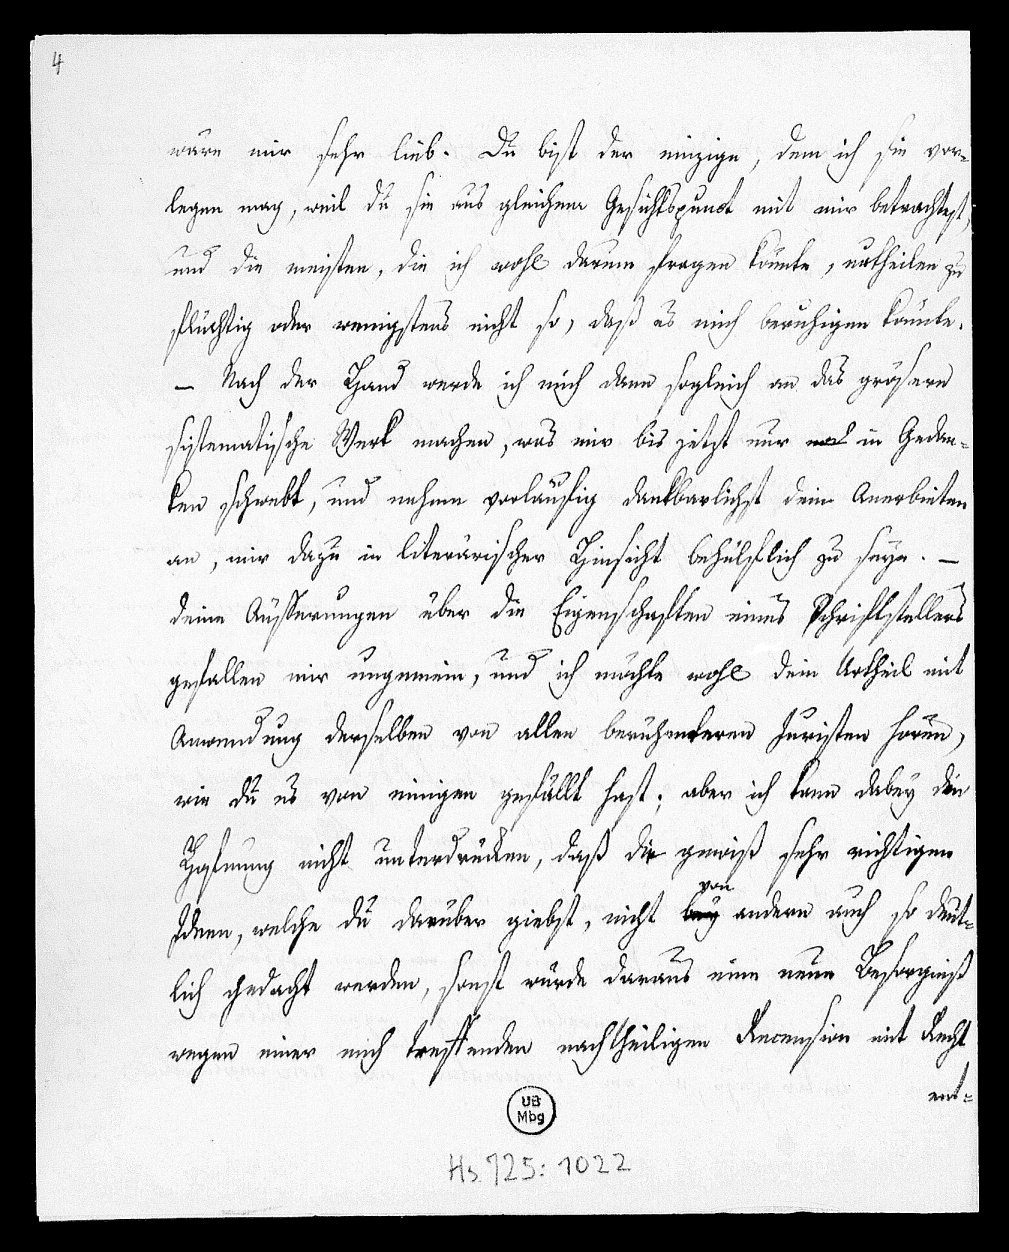 4
wäre mir sehr lieb. Du bist der einzige, dem ich sie vor-
legen mag, weil du sie aus gleichem Gesichtspunct mit mir betrachtest,
und die meisten, die ich wohl darum fragen könnte, urtheilen zu
flüchtig oder wenigstens nicht so, daß es mich beruhigen könnte.
– Nach der Hand werde ich mich dann sogleich an das grösere
sistematische Werk machen, was mir bis jetzt nur in Gedan-
ken schwebt, und nehme vorläufig dankbarlichst dein Anerbieten
an, mir dazu in literärischer Hinsicht behülflich zu seyn. –
deine Äusserungen über die Eigenschaften eines Schriftstellers
gefallen mir ungemein, und ich möchte wohl dein Urtheil mit
Anwendung derselben von allen berühmteren Juristen hören,
wie du es von einigen gefällt hast; aber ich kann dabey die
Hofnung nicht unterdrücken, daß die gewiß sehr richtigen
Ideen, welche du darüber giebst, nicht bey von andern auch so deut-
lich gedacht werden, sonst würde daraus eine neue Besorgniß
wegen einer mich treffenden nachtheiligen Recension mit Recht
ent-
UB
Mbg
Hs. 725: 1022